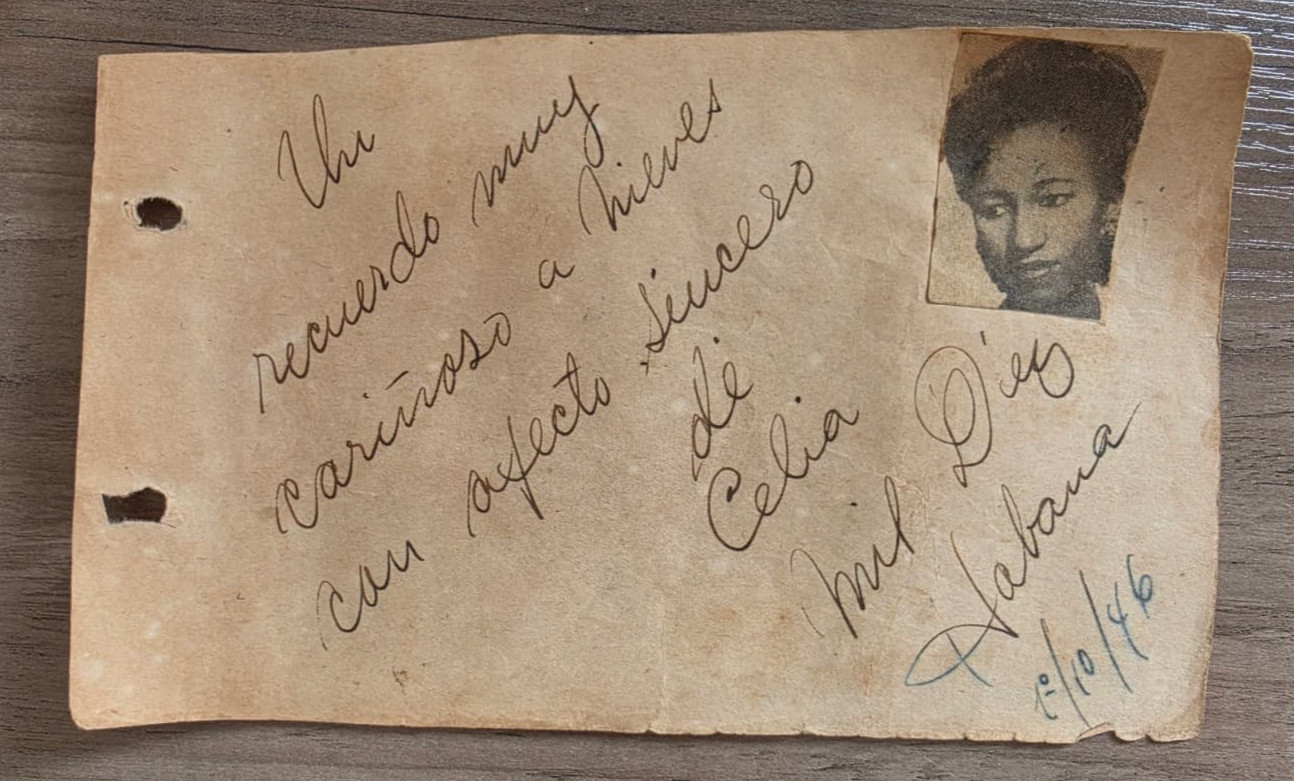 Un
recuerdo muy
cariñoso a Nieves
con afecto sincero
de
Celia
Mil Diez
Habana
1º/10/46